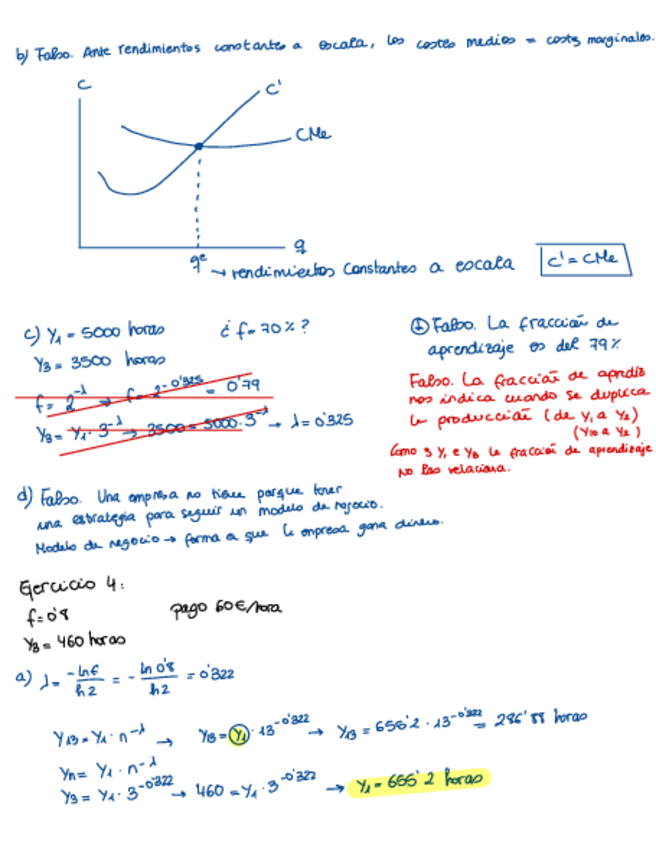 b) Falso. Ante rendimientos constantes a escala, los costes medios = costes marginales.
C
C'
CMe
q
qe → rendimientos constantes a escala
C' = CMe
c) Y1 = 5000 horas ¿ f = 70% ?
Y3 = 3500 horas
f = 2^-λ → f = 2^-0'325 = 0'79
Y3 = Y1 · 3^-λ → 3500 = 5000 · 3^-λ → λ = 0'325
Falso. La fracción de
aprendizaje es del 79%
Falso. La fracción de aprdiz
nos indica cuando se duplica
la producción (de Y1 a Y2)
(Y10 a Y2)
Como 3 Y1 e Y3 la fracción de aprendizaje
no las relaciona.
d) Falso. Una empresa no tiene porque tener
una estrategia para seguir un modelo de negocio.
Modelo de negocio → forma en que la empresa gana dinero.
Ejercicio 4:
f = 0'8 pago 60€/hora
Y3 = 460 horas
a) λ = -ln f / ln 2 = - ln 0'8 / ln 2 = 0'322
Y13 = Y1 · n^-λ → Y13 = Y1 · 13^-0'322 → Y13 = 655'2 · 13^-0'322 = 286'88 horas
Yn = Y1 · n^-λ
Y3 = Y1 · 3^-0'322 → 460 = Y1 · 3^-0'322 → Y1 = 655'2 horas